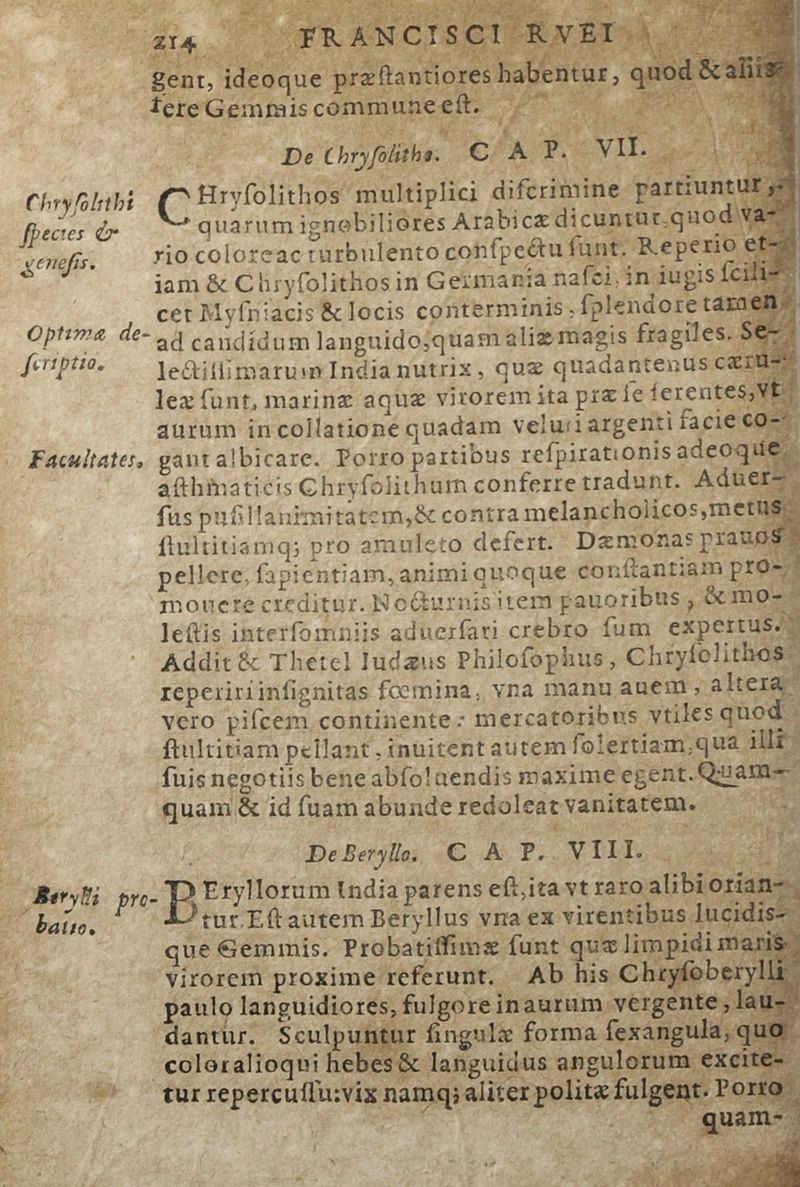 214 FRANCISCI RVEI
gent, ideoque præſtantiores habentur, quod & aliis
fere Gemmis commune eſt.
De Chryſolitho. C A P. VII.
Chryſolithi ſpecies & geneſis.
CHryſolithos multiplici diſcrimine partiuntur,
quarum ignobiliores Arabicæ dicuntur, quod va-
rio colore ac turbulento conſpectu ſunt. Reperio et-
iam & Chryſolithos in Germania naſci, in iugis ſcili-
cet Myſniacis & locis conterminis, ſplendore tamen
Optimæ de-
ſcriptio.
ad candidum languido, quam aliæ magis fragiles. Se-
lectiſſimarum India nutrix, quæ quadantenus cæru-
leæ ſunt, marinæ aquæ virorem ita præ ſe ferentes, vt
aurum in collatione quadam veluti argenti facie co-
Facultates.
gant albicare. Porro partibus reſpirationis adeoque
aſthmaticis Chryſolithum conferre tradunt. Aduer-
ſus puſillanimitatem, & contra melancholicos, metus
ſtultitiamq; pro amuleto defert. Dæmonas prauos
pellere, ſapientiam, animi quoque conſtantiam pro-
mouere creditur. Nocturnis item pauoribus, & mo-
leſtis interſomniis aduerſari crebro ſum expertus.
Addit & Thetel Iudæus Philoſophus, Chryſolithos
reperiri inſignitas fœmina, vna manu auem, altera
vero piſcem continente: mercatoribus vtiles quod
ſtultitiam pellant, inuitent autem ſolertiam, qua illi
ſuis negotiis bene abſoluendis maxime egent. Quam-
quam & id ſuam abunde redoleat vanitatem.
De Beryllo. C A P. VIII.
Berylli pro-
batio.
BEryllorum India parens eſt, ita vt raro alibi orian-
tur. Eſt autem Beryllus vna ex virentibus lucidis-
que Gemmis. Probatiſſimæ ſunt quæ limpidi maris
virorem proxime referunt. Ab his Chryſoberylli
paulo languidiores, fulgore in aurum vergente, lau-
dantur. Sculpuntur ſingulæ forma ſexangula, quo
color alioqui hebes & languidus angulorum excite-
tur repercuſſu: vix namq; aliter politæ fulgent. Porro
quam-